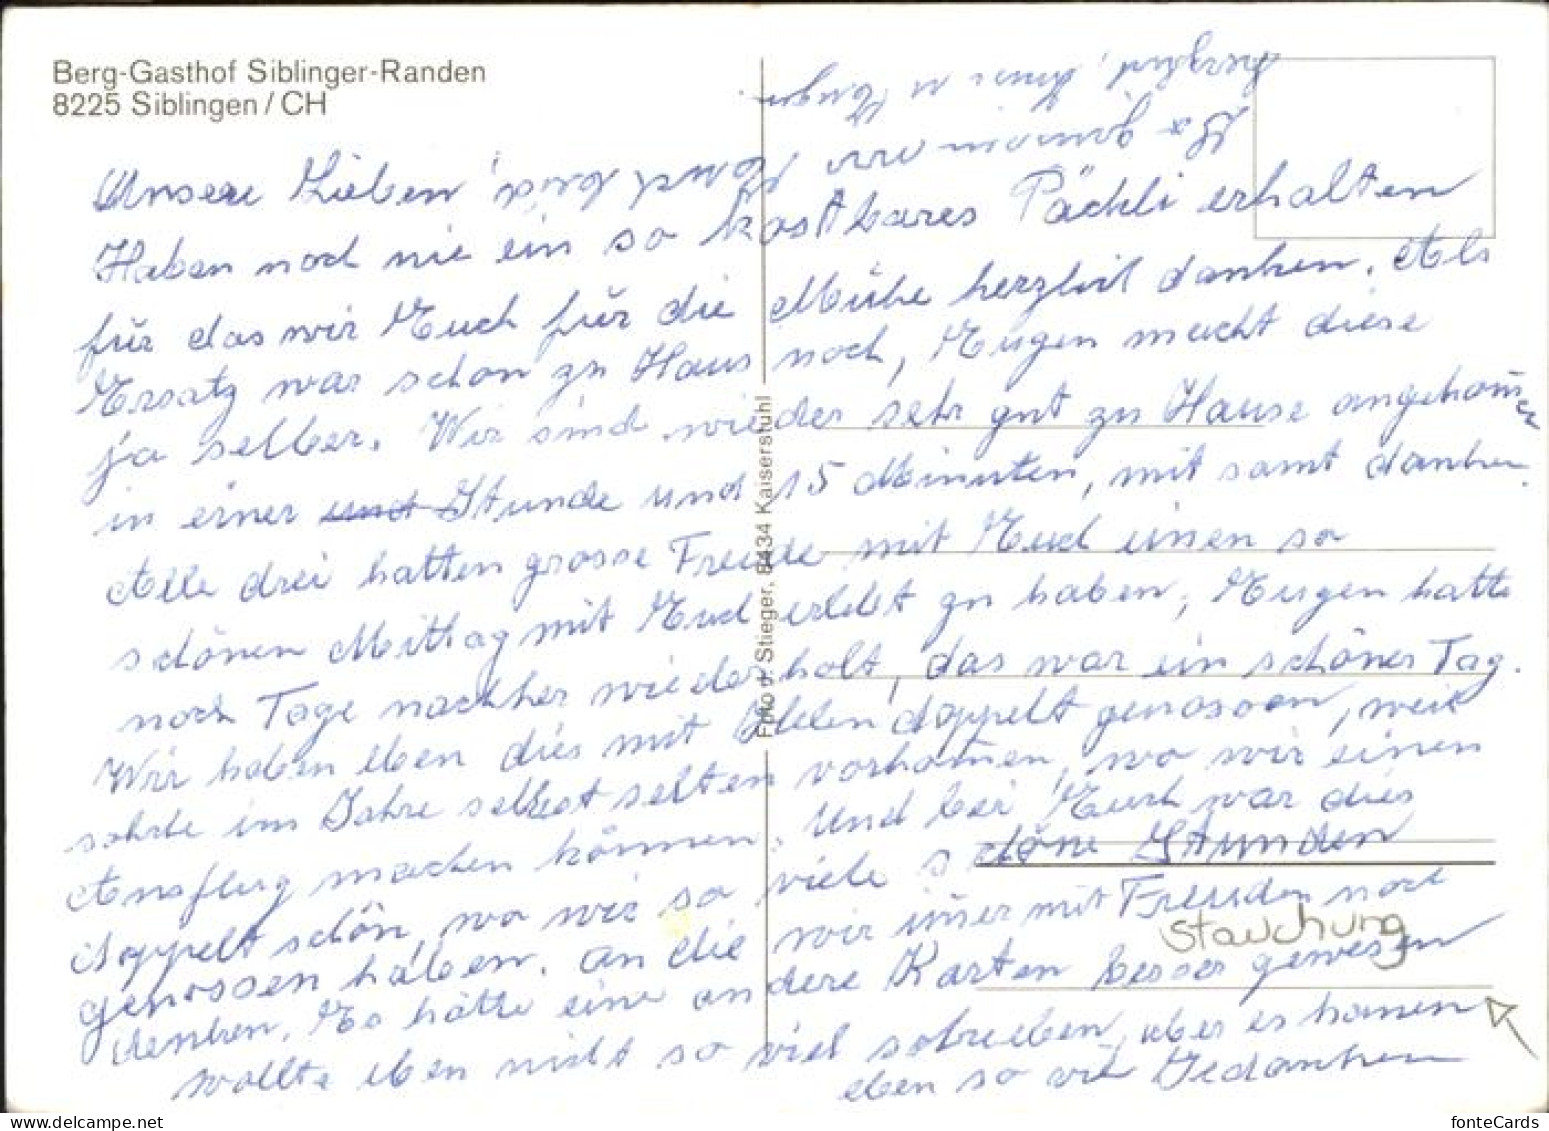 Berg-Gasthof Siblinger-Randen
8225 Siblingen / CH
Unsere Lieben
Haben noch nie ein so kostbares Päckli erhalten
für das wir Euch für die Mühe herzlich danken. Als
Ersatz war schon zu Haus noch, Eugen macht diese
ja selber. Wir sind wieder sehr gut zu Hause angekommen
in einer und Stunde und 15 Minuten, mit samt danken.
Alle drei hatten grosse Freude mit Euch einen so
schönen Mittag mit Euch erlebt zu haben, Eugen hatte
noch Tage nachher wiederholt, das war ein schöner Tag.
Wir haben eben dies mit Allen doppelt genossen, weil
solche im Jahre selbst selten vorkommen, wo wir einen
Ausflug machen können. Und bei Euch war dies
doppelt schön, wo wir so viele schöne Stunden
genossen haben, an die wir immer mit Freuden noch
denken. Es hätte eine andere Karten besser gewesen
wollte eben nicht so viel schreiben, aber es kamen
eben so viel Gedanken
Es grüssen
Stauchung
Foto J. Stieger, 8434 Kaiserstuhl
fonteCards